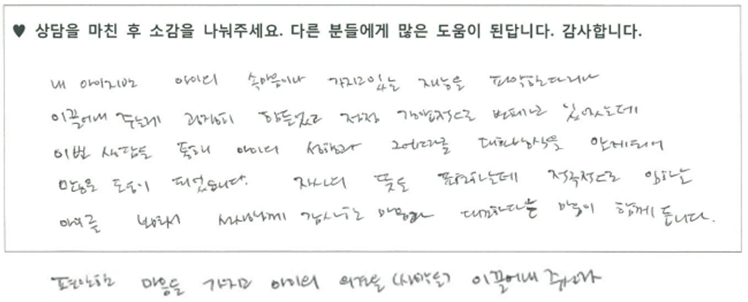 ♥ 상담을 마친 후 소감을 나눠주세요. 다른 분들에게 많은 도움이 된답니다. 감사합니다.
내 아이지만 아이의 속마음이나 가지고있는 재능을 파악한다거나
이끌어내 주는게 굉장히 힘들었고 점점 강압적으로 변해가고 있었는데
이번 상담을 통해 아이의 성향과 대화방식을 알게되어
많은 도움이 되었습니다. 자신의 뜻을 표현하는데 적극적으로 임하는
아이를 보면서 선생님께 감사하는 마음과 대견하다는 마음이 함께 듭니다.
편안한 마음을 가지고 아이의 의견을 (생각을) 이끌어내 주셔서